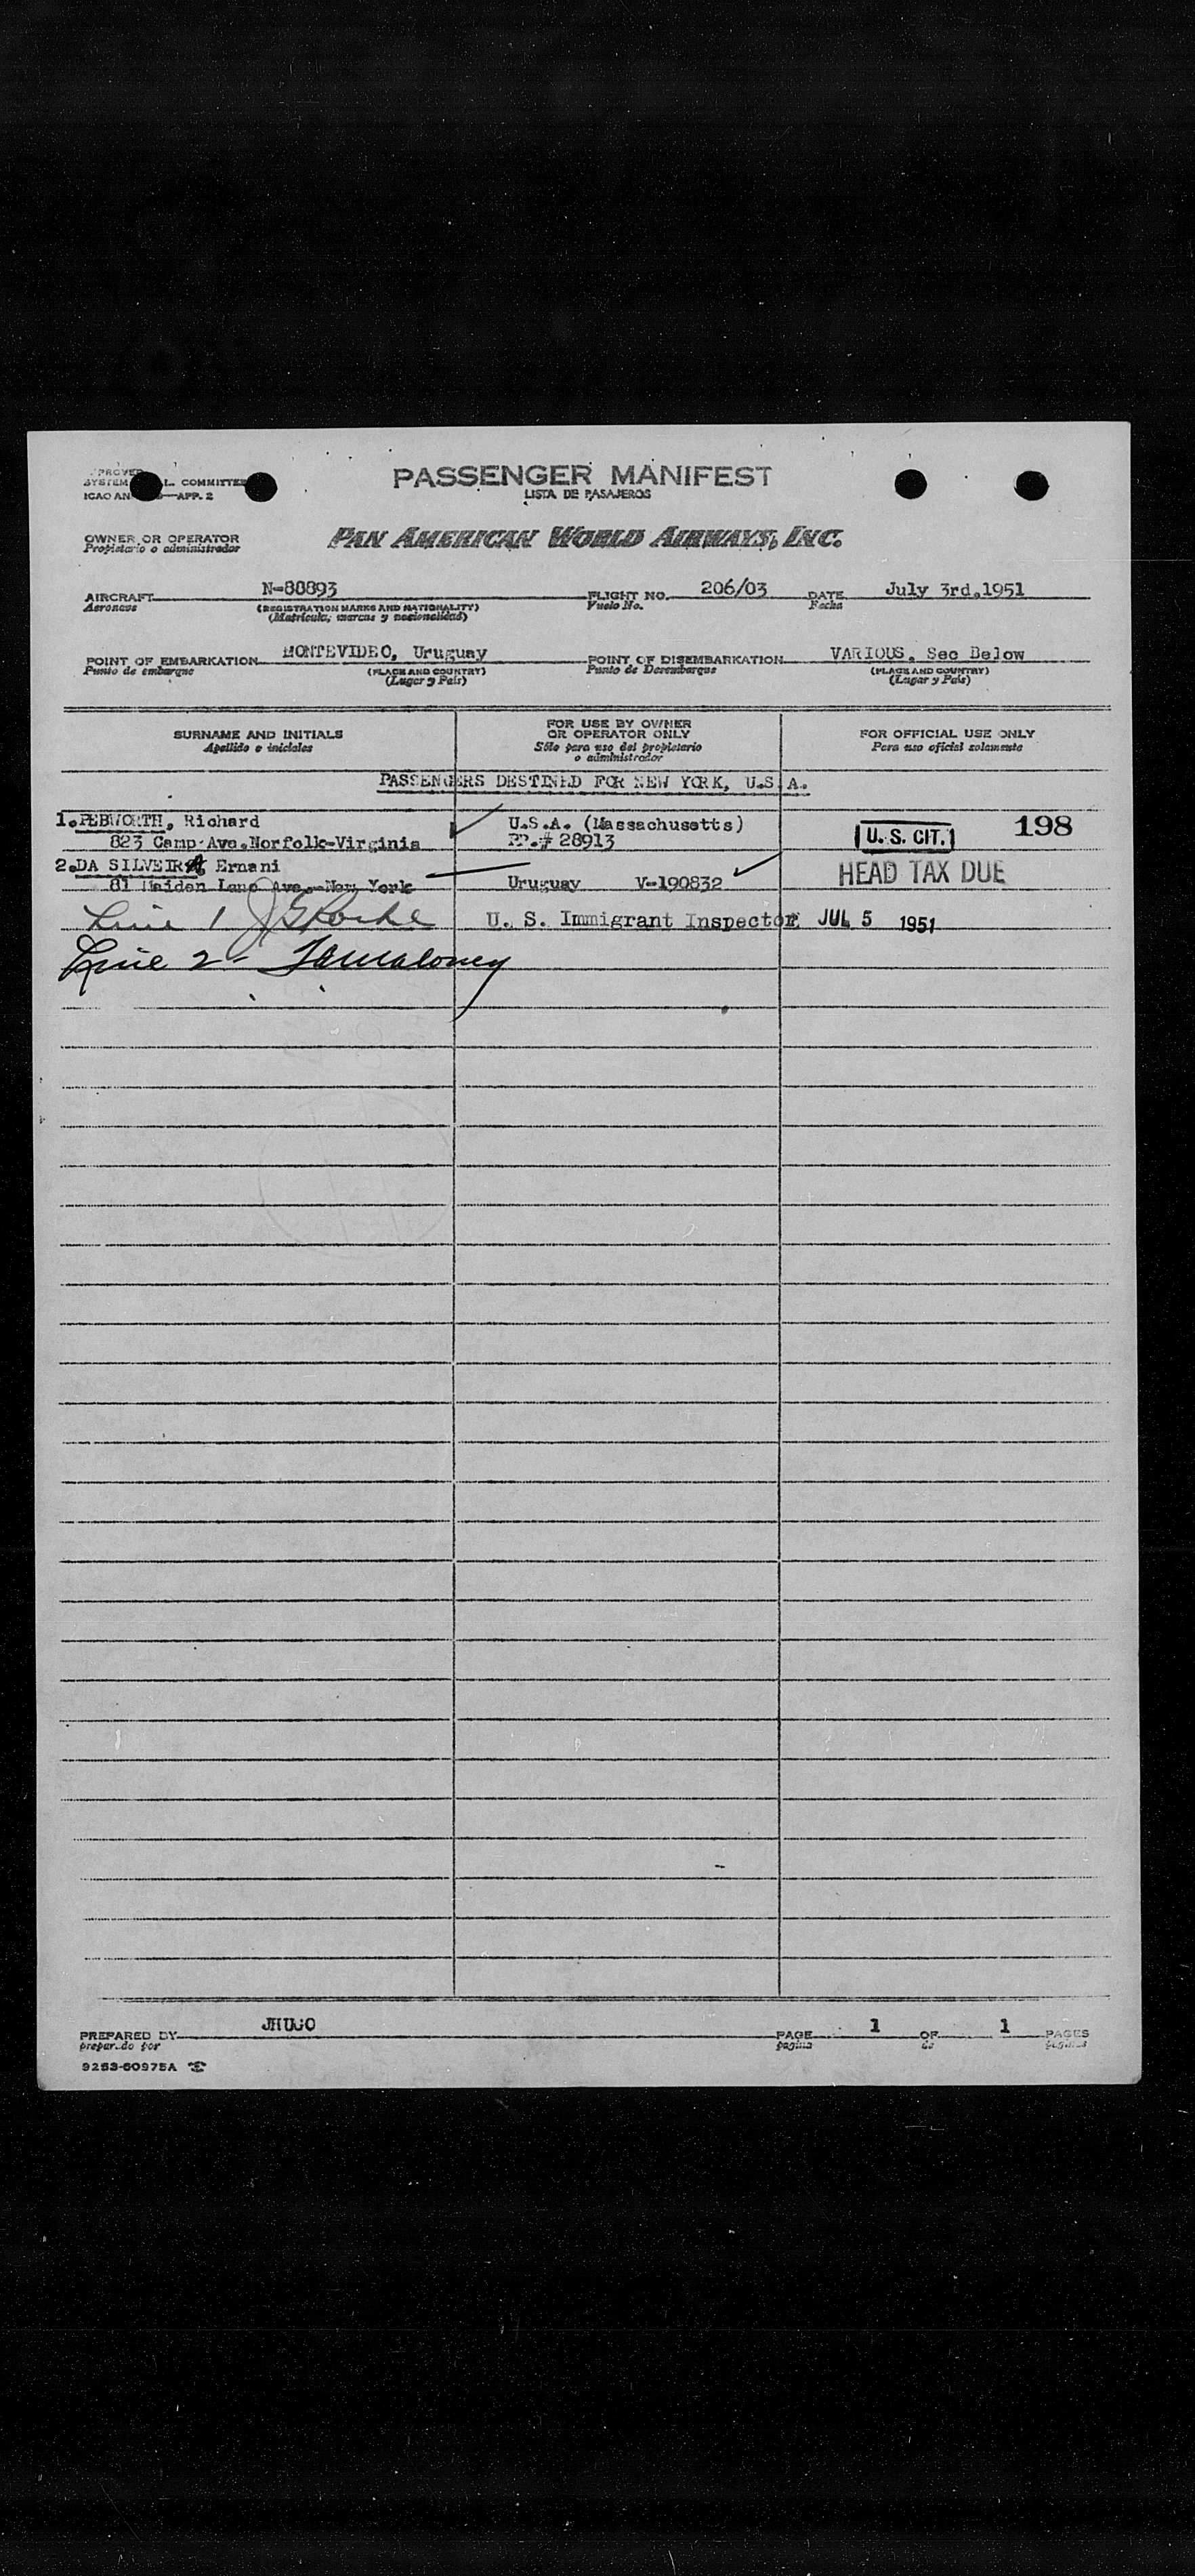 PASSENGER MANIFEST
LISTA DE PASAJEROS
COMMITTEE
ICAO AN —APP. 2
OWNER OR OPERATOR
Propietario o administrador
PAN AMERICAN WORLD AIRWAYS, INC.
AIRCRAFT N-88893 FLIGHT NO. 206/03 DATE July 3rd.1951
Aeronave (REGISTRATION MARKS AND NATIONALITY) Vuelo No. Fecha
(Matricula, marcas y nacionalidad)
POINT OF EMBARKATION MONTEVIDEO, Uruguay POINT OF DISEMBARKATION VARIOUS. See Below
Punto de embarque (PLACE AND COUNTRY) Punto de Desembarque (PLACE AND COUNTRY)
(Lugar y Pais) (Lugar y Pais)
SURNAME AND INITIALS FOR USE BY OWNER OR OPERATOR ONLY FOR OFFICIAL USE ONLY
Apellido e iniciales Sólo para uso del propietario o administrador Para uso oficial solamente
PASSENGERS DESTINED FOR NEW YORK, U.S.A.
1.PEBWORTH, Richard U.S.A. (Massachusetts) U. S. CIT. 198
823 Camp Ave.Norfolk-Virginia PP.# 28913
2.DA SILVEIRA, Ernani HEAD TAX DUE
81 Maiden Lane Ave.-New York Uruguay V-190832
Line 1 U. S. Immigrant Inspector JUL 5 1951
Line 2 -
PREPARED BY JHUGO PAGE 1 OF 1 PAGES
preparado por pagina de paginas
9253-60975A